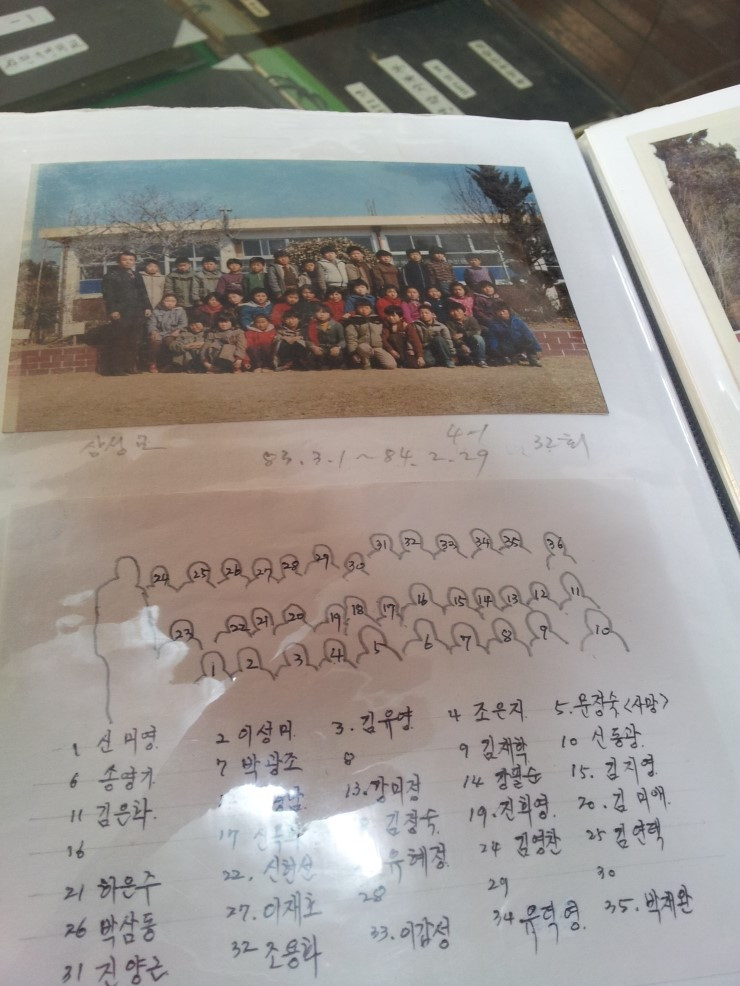 삼성교
4-1
83.3.1~84.2.29 32회
31 32 33 34 35 36
24 25 26 27 28 29 30
16 15 14 13 12 11
23 22 21 20 19 18 17
1 2 3 4 5 6 7 8 9 10
1 신미영 2 이성미 3. 김유영 4 조은지 5. 문장숙<사망>
6 송양기 7 박광조 8 9 김재학 10 신동광
11 김은화 13. 강미정 14 강필순 15. 김지영
16 17 김정숙 19. 진희영 20. 김미애
21 하은주 22. 신현선 유혜정 24 김영찬 25 김연택
26 박삼동 27. 이재호 28 29 30
31 진양근 32 조용화 33. 이갑성 34 유덕영 35. 박재완